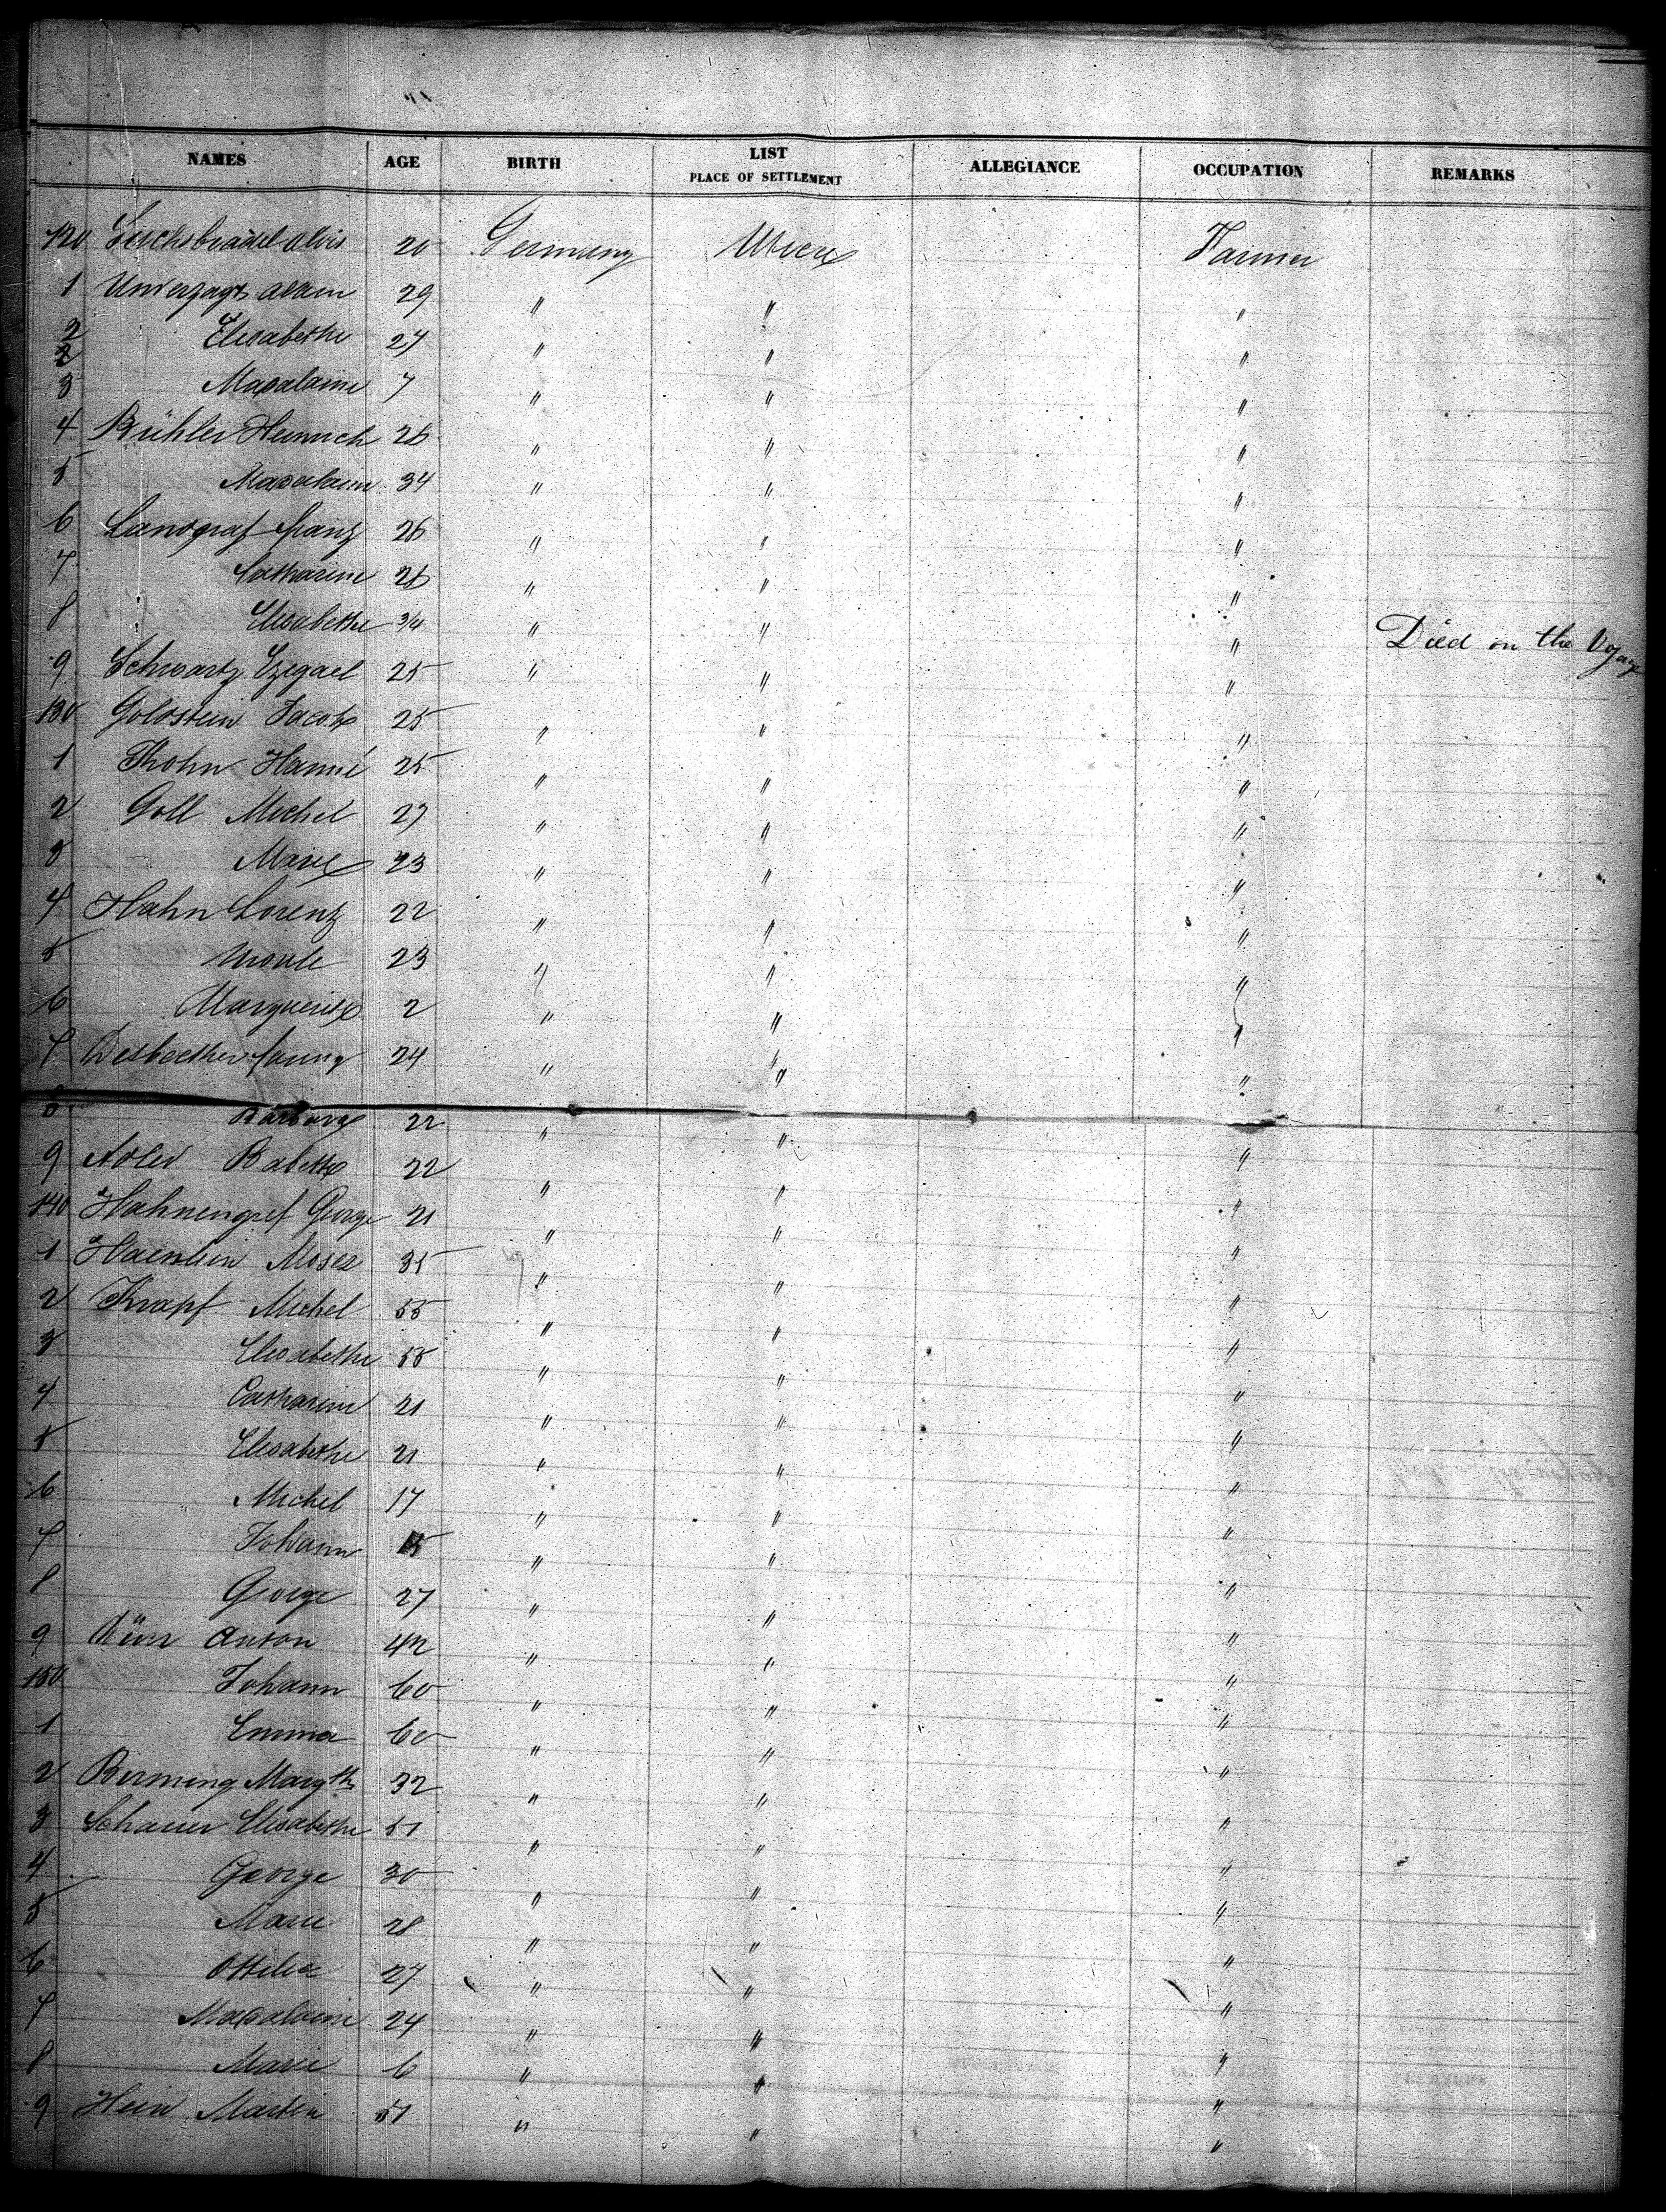 NAMES AGE BIRTH LIST PLACE OF SETTLEMENT ALLEGIANCE OCCUPATION REMARKS
120 20 Germany Farmer
1 Unverzagt 29 " " "
2 Elisabethe 27 " " "
3 7 " " "
4 Bühler Heinrich 26 " " "
5 34 " " "
6 26 " " "
7 Catharine 26 " " "
8 Elisabethe 3/4 " " " Died on the Voyage
9 Schwartz 25 " " "
130 Goldstein Jacob 25 " " "
1 Kohn 25 " " "
2 Goll Michel 27 " " "
3 Marie 23 " " "
4 Hahn Lorenz 22 " " "
5 23 " " "
6 Marguerite 2 " " "
7 24 " " "
8 Barbara 22 " " "
9 Adler Babette 22 " " "
140 George 21 " " "
1 Moses 35 " " "
2 Knapf Michel 55 " " "
3 Elisabethe 55 " " "
4 Catharine 21 " " "
5 Elisabethe 21 " " "
6 Michel 17 " " "
7 Johann 15 " " "
8 George 27 " " "
9 Anton 42 " " "
150 Johann 60 " " "
1 Emma 60 " " "
2 Margth 32 " " "
3 Schauer Elisabethe 51 " " "
4 George 30 " " "
5 Marie 28 " " "
6 Ottilia 27 " " "
7 24 " " "
8 Marie 6 " " "
9 Hein Martin 51 " " "